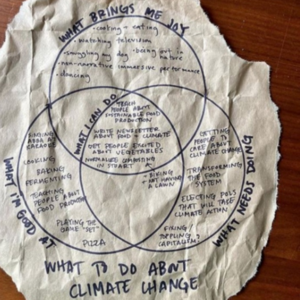 WHAT BRINGS ME JOY
· cooking + eating
· watching television
· snuggling my dog · being out in nature
· non-narrative immersive performance
· dancing
WHAT CAN I DO
TEACH
PEOPLE ABOUT
SUSTAINABLE FOOD
PRODUCTION
WRITE NEWSLETTER
ABOUT FOOD + CLIMATE
GET PEOPLE EXCITED
ABOUT VEGETABLES
NORMALIZE COMPOSTING
IN
- BIKING
- NOT HAVING
A LAWN
WHAT I'M GOOD AT
COOKING
BAKING
FERMENTING
TEACHING
PEOPLE ABOUT
FOOD PRODUCTION
PLAYING THE
GAME "SET"
PIZZA
WHAT NEEDS DOING
GETTING
PEOPLE TO
CARE ABOUT
CLIMATE CHANGE
TRANSFORMING
THE FOOD
SYSTEM
ELECTING POLS
THAT WILL TAKE
CLIMATE ACTION
FIXING/
TOPPLING
CAPITALISM?
WHAT TO DO ABOUT
CLIMATE CHANGE